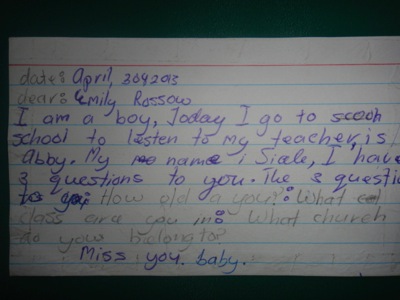 date: April, 30 2013
dear: Emily Rossow
I am a boy, Today I go to scooh
school to listen to my teacher, is
Abby. My me name i Siale, I have
3 questions to you. The 3 questio
to you: How old a you?: What
class are you in: What church
do you belong to?
Miss you. baby.